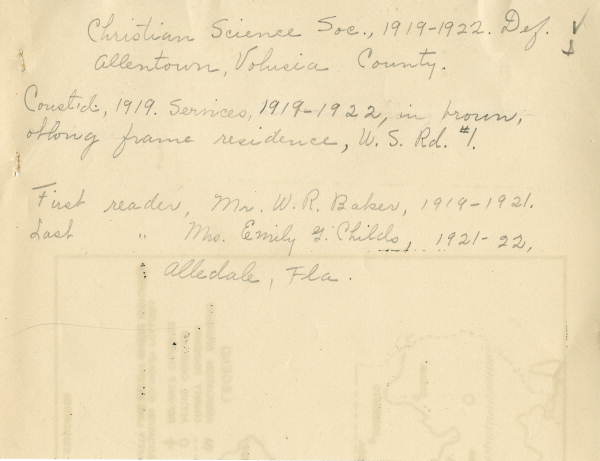 Christian Science Soc., 1919-1922. Def.
Allentown, Volusia County.
Const'd:, 1919. Services, 1919-1922, in brown,
oblong frame residence, W. S. Rd. #1.
First reader, Mr. W. R. Baker, 1919-1921.
Last " Mrs. Emily Y. Childs, 1921-22,
Alledale, Fla.
LEGEND